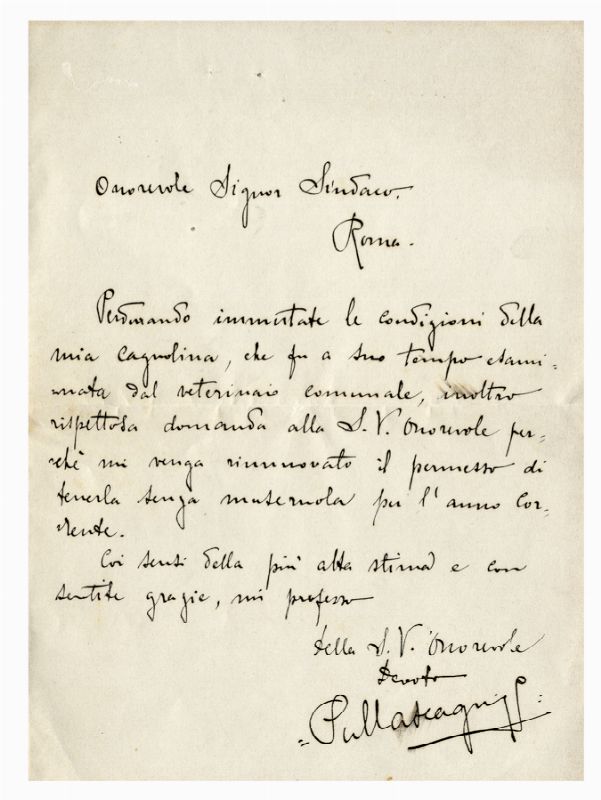 Onorevole Signor Sindaco.
Roma.
Perdurando immutate le condizioni della
mia cagnolina, che fu a suo tempo esami=
nata dal veterinaio comunale, inoltro
rispettosa domanda alla S. V. Onorevole per=
chè mi venga rinnovato il permesso di
tenerla senza museruola per l'anno cor=
rente.
Coi sensi della più alta stima e con
sentite grazie, mi professo
della S. V. Onorevole
Devoto